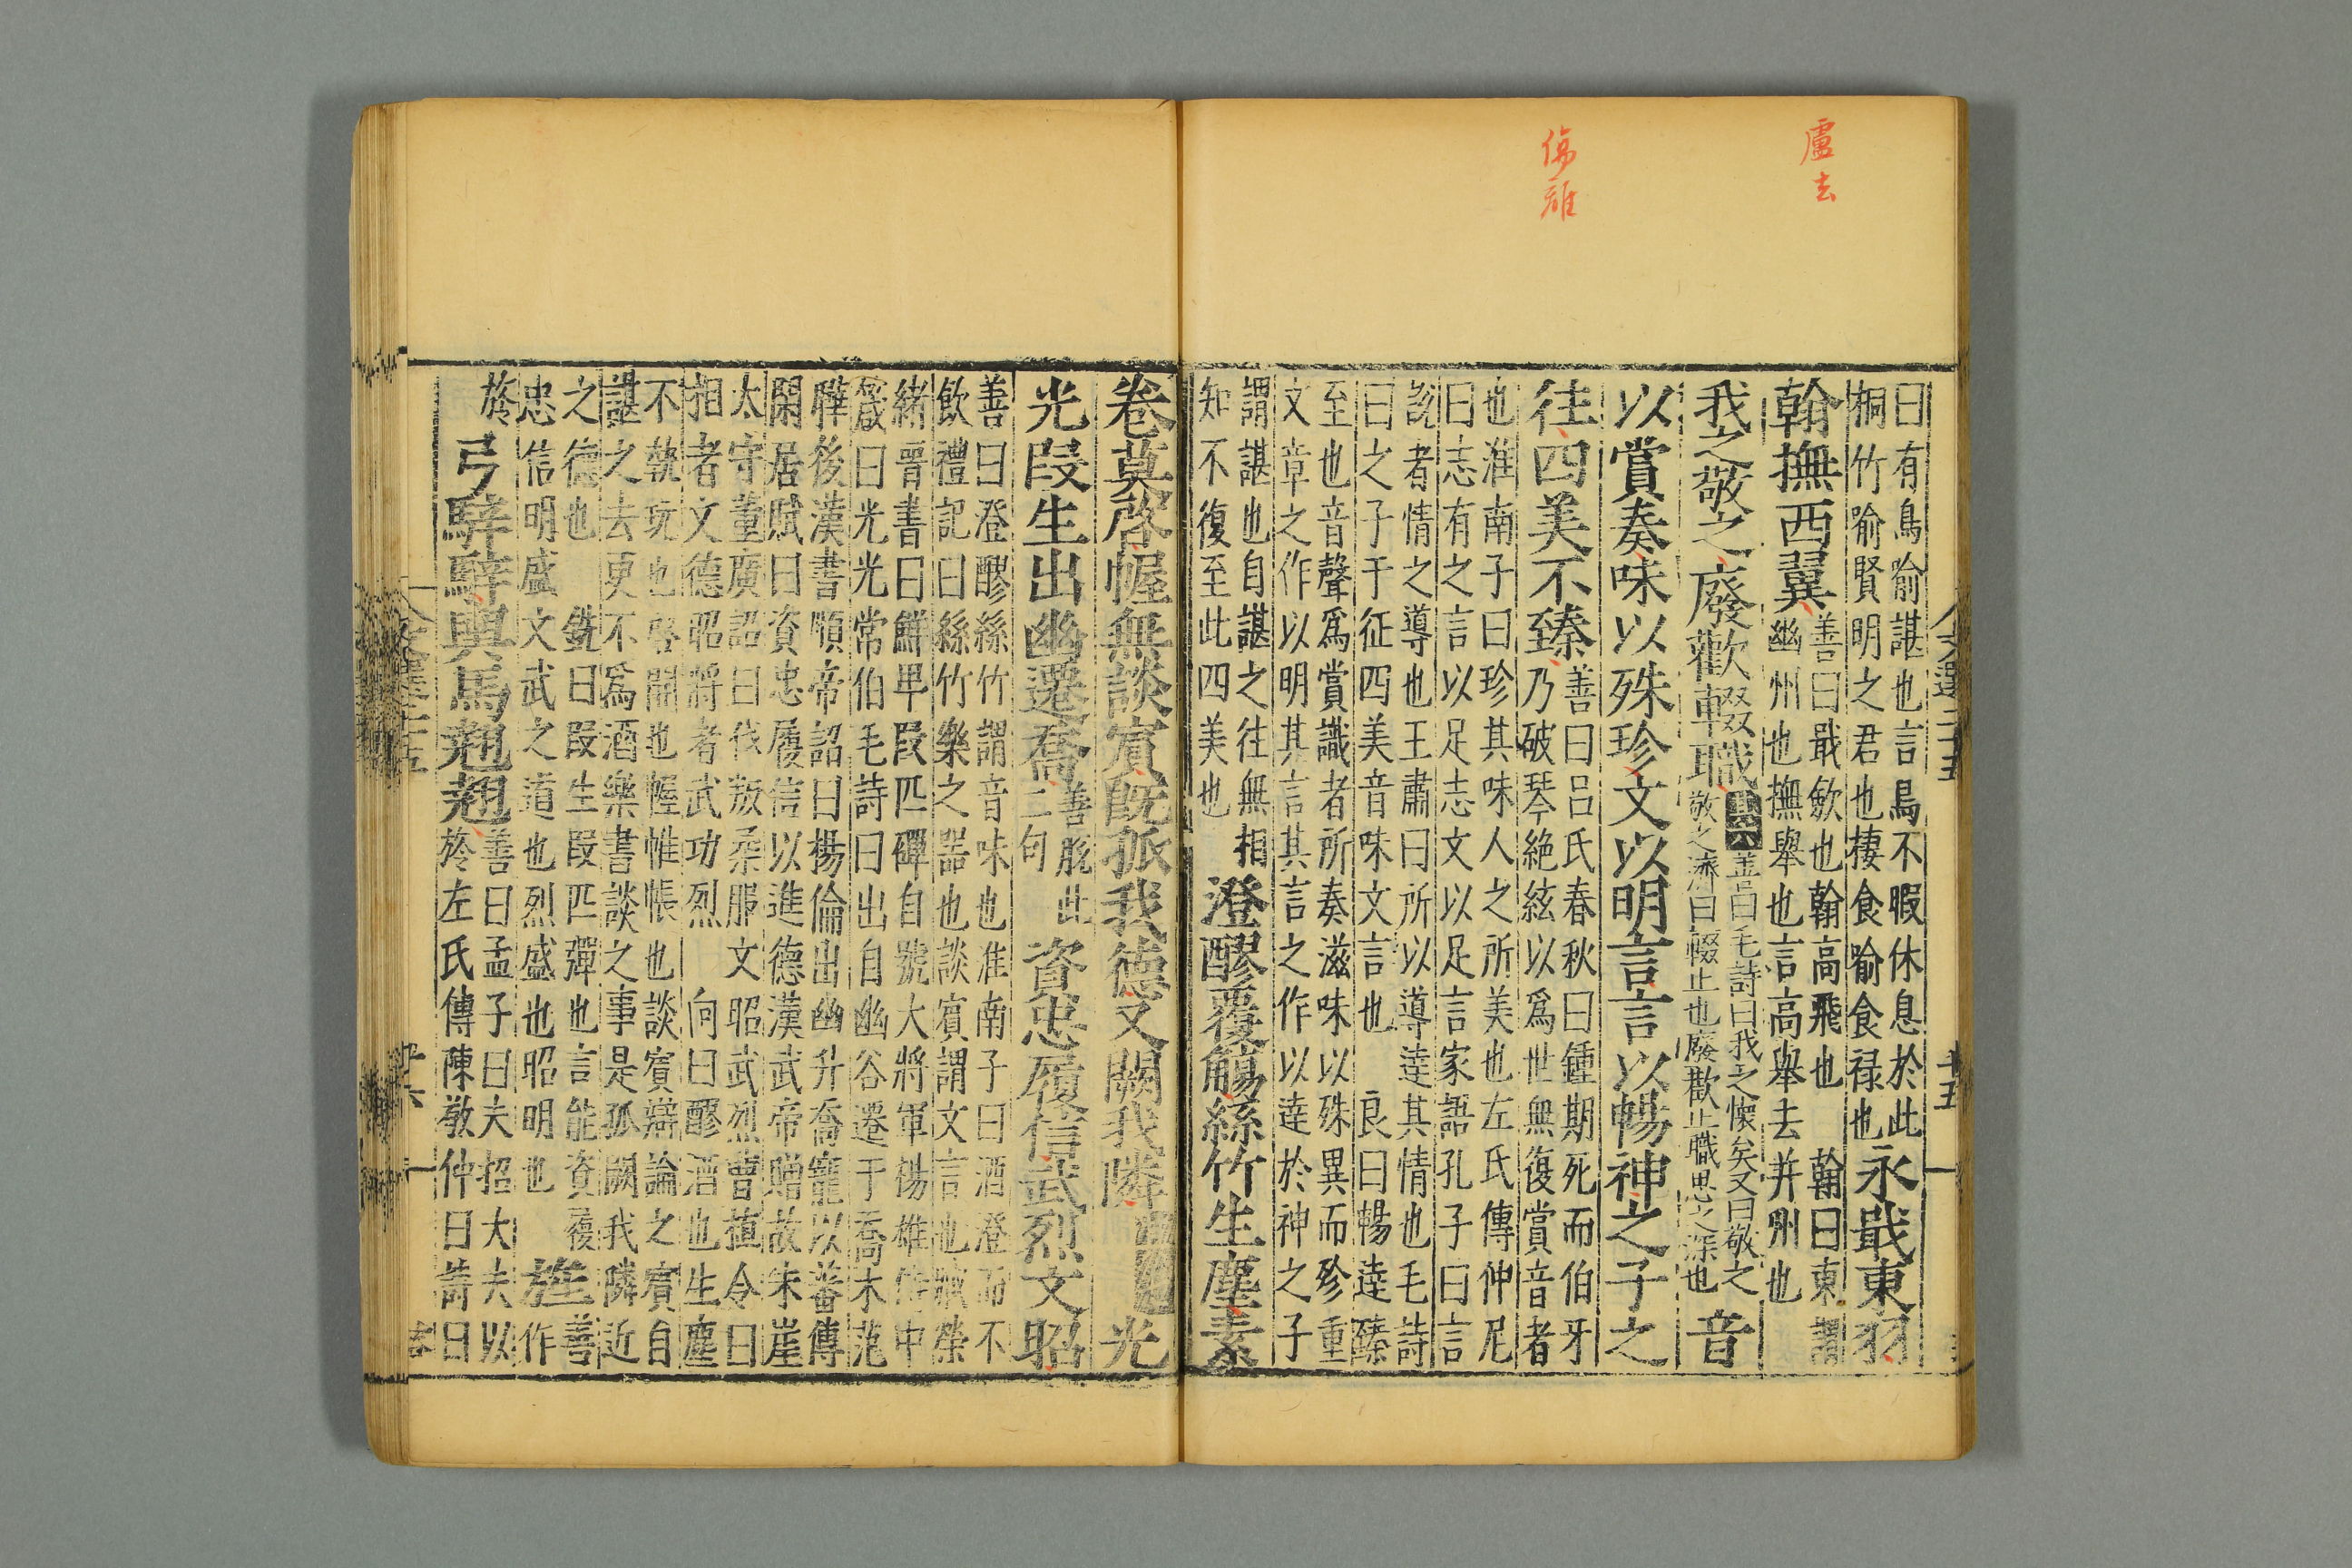 盧去
傷離
曰有鳥喻諶也言鳥不暇休息於此
桐竹喻賢明之君也棲食喻食祿也
永戢東羽
翰撫西翼
善曰戢斂也翰高飛也 翰曰東謂
幽州也撫舉也言高舉去并州也
我之敬之廢歡輟職
其六
善曰毛詩曰我之懷矣又曰敬之
敬之濟曰輟止也廢歡止職思之深也
音
以賞奏味以殊珍文以明言言以暢神之子之
往四美不臻
善曰呂氏春秋曰鍾期死而伯牙
乃破琴絕絃以爲世無復賞音者
也淮南子曰珍其味人之所美也左氏傳仲尼
曰志有之言以足志文以足言家語孔子曰言
該者情之導也王肅曰所以導達其情也毛詩
曰之子于征四美音味文言也 良曰暢達臻
至也音聲爲賞識者所奏滋味以殊異而珍重
文章之作以明其言其言之作以達於神之子
謂諶也自諶之往無相
知不復至此四美也
澄醪覆觴絲竹生塵素
卷莫啓幄無談賓旣孤我德又闕我隣
光
光段生出幽遷喬
善脫此
二句
資忠履信武烈文昭
善曰澄醪絲竹謂音味也淮南子曰酒澄而不
飲禮記曰絲竹樂之器也談賓謂文言也臧榮
緒晉書曰鮮卑段匹磾自號大將軍楊雄侍中
箴曰光光常伯毛詩曰出自幽谷遷于喬木范
曄後漢書順帝詔曰楊倫出幽升喬寵以蕃傅
閑居賦曰資忠履信以進德漢武帝贈故朱崖
太守董廣詔曰伐叛柔服文昭武烈曹植令曰
相者文德昭將者武功烈 向曰醪酒也生塵
不執玩也啓開也幄帷帳也談賓辯論之賓自
諶之去更不爲酒樂書談之事是孤闕我隣近
之德也 銑曰段生段匹彈也言能資履
忠信明盛文武之道也烈盛也昭明也
旌
善
作
旍
弓騂騂輿馬翹翹
善曰孟子曰夫招大夫以
於左氏傳陳敬仲曰詩曰